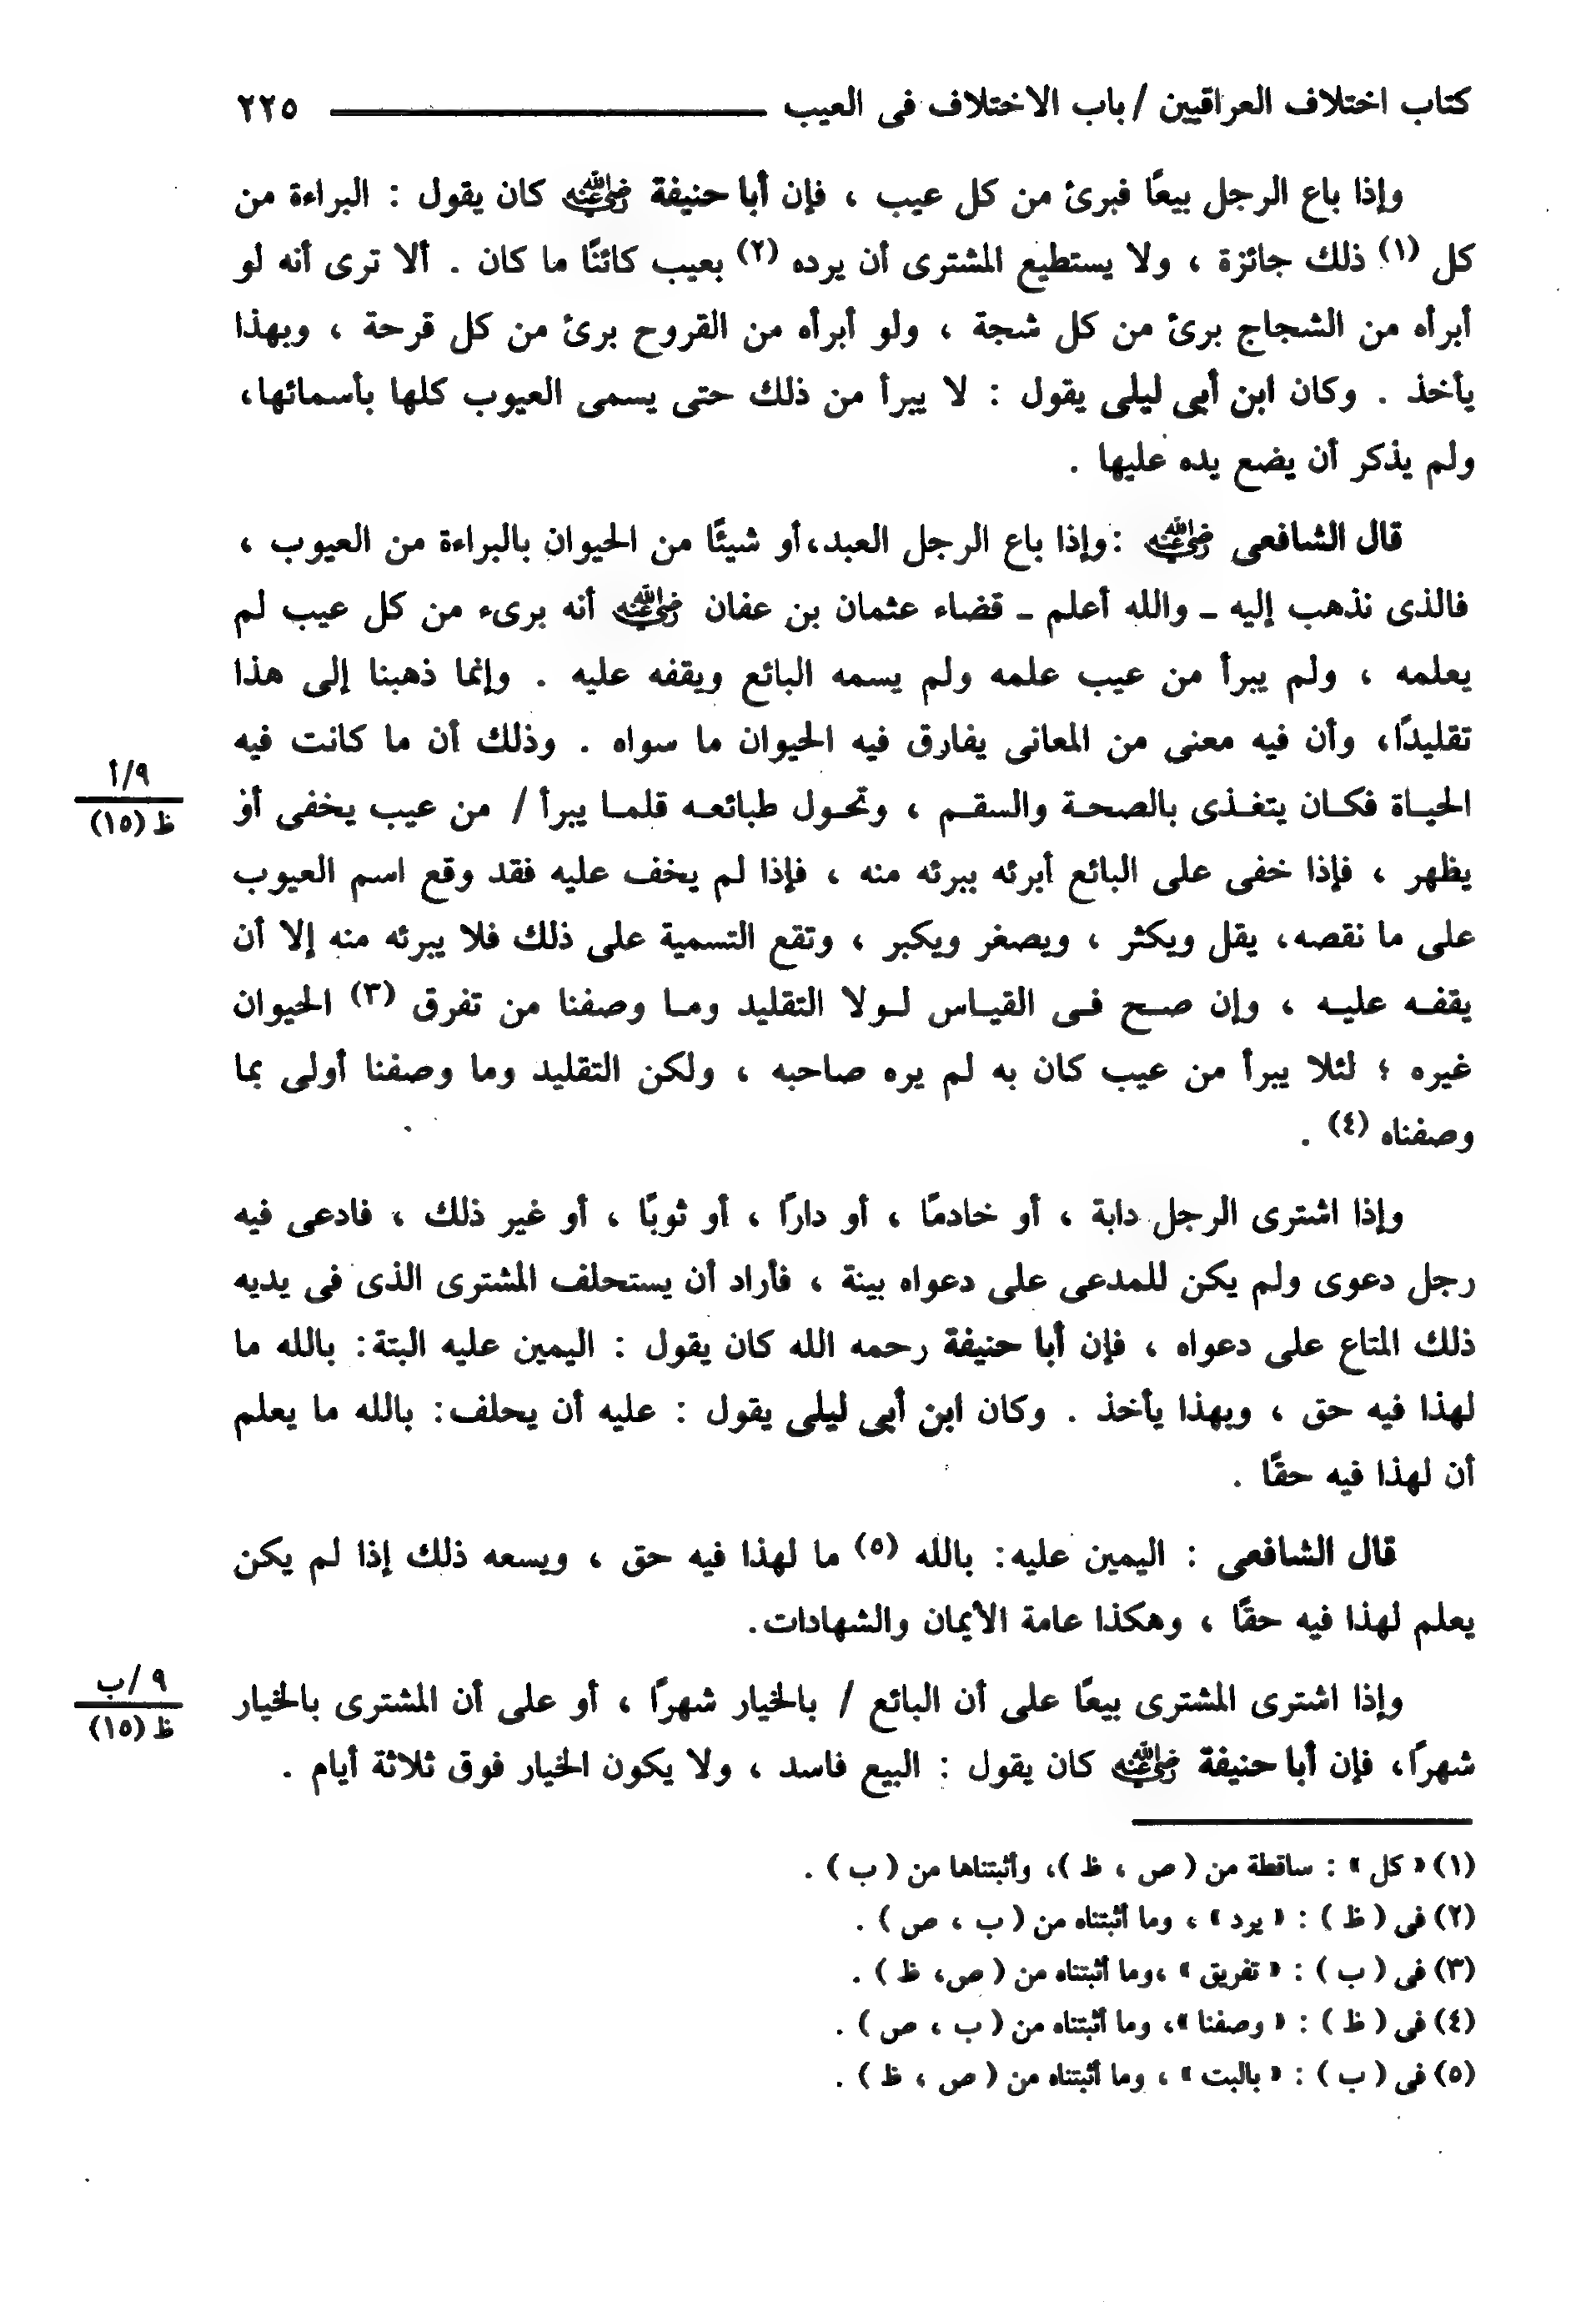 كتاب اختلاف العراقيين / باب الاختلاف فى العيب ٢٢٥
وإذا باع الرجل بيعًا فبرئ من كل عيب ، فإن أبا حنيفة رضي الله عنه كان يقول : البراءة من
كل (١) ذلك جائزة ، ولا يستطيع المشترى أن يرده (٢) بعيب كائنًا ما كان . ألا ترى أنه لو
أبرأه من الشجاج برئ من كل شجة ، ولو أبرأه من القروح برئ من كل قرحة ، وبهذا
يأخذ . وكان ابن أبى ليلى يقول : لا يبرأ من ذلك حتى يسمى العيوب كلها بأسمائها،
ولم يذكر أن يضع يده عليها .
قال الشافعى رضي الله عنه :وإذا باع الرجل العبد،أو شيئًا من الحيوان بالبراءة من العيوب ،
فالذى نذهب إليه ـ والله أعلم ـ قضاء عثمان بن عفان رضي الله عنه أنه برىء من كل عيب لم
يعلمه ، ولم يبرأ من عيب علمه ولم يسمه البائع ويقفه عليه . وإنما ذهبنا إلى هذا
تقليدًا، وأن فيه معنى من المعانى يفارق فيه الحيوان ما سواه . وذلك أن ما كانت فيه
٩/أ
ظ (١٥)
الحيـاة فكـان يتغـذى بالصحـة والسقـم ، وتحـول طبائعـه قلمـا يبرأ / من عيب يخفى أو
يظهر ، فإذا خفى على البائع أبرئه يبرئه منه ، فإذا لم يخف عليه فقد وقع اسم العيوب
على ما نقصه، يقل ويكثر ، ويصغر ويكبر ، وتقع التسمية على ذلك فلا يبرئه منه إلا أن
يقفـه عليـه ، وإن صـح فـى القيـاس لـولا التقليد ومـا وصفنا من تفرق (٣) الحيوان
غيره ؛ لئلا يبرأ من عيب كان به لم يره صاحبه ، ولكن التقليد وما وصفنا أولى بما
وصفناه (٤) .
وإذا اشترى الرجل دابة ، أو خادمًا ، أو دارًا ، أو ثوبًا ، أو غير ذلك ، فادعى فيه
رجل دعوى ولم يكن للمدعى على دعواه بينة ، فأراد أن يستحلف المشترى الذى فى يديه
ذلك المتاع على دعواه ، فإن أبا حنيفة رحمه الله كان يقول : اليمين عليه البتة: بالله ما
لهذا فيه حق ، وبهذا يأخذ . وكان ابن أبى ليلى يقول : عليه أن يحلف: بالله ما يعلم
أن لهذا فيه حقًا .
قال الشافعى : اليمين عليه: بالله (٥) ما لهذا فيه حق ، ويسعه ذلك إذا لم يكن
يعلم لهذا فيه حقًا ، وهكذا عامة الأيمان والشهادات.
٩ /ب
ظ (١٥)
وإذا اشترى المشترى بيعًا على أن البائع / بالخيار شهرًا ، أو على أن المشترى بالخيار
شهرًا، فإن أبا حنيفة رضي الله عنه كان يقول : البيع فاسد ، ولا يكون الخيار فوق ثلاثة أيام .
(١) « كل » : ساقطة من ( ص ، ظ )، وأثبتناها من ( ب ) .
(٢) فى ( ظ ) : « يرد » ، وما أثبتناه من ( ب ، ص ) .
(٣) فى ( ب ) : « تفريق » ،وما أثبتناه من ( ص، ظ ) .
(٤) فى ( ظ ) : « وصفنا »، وما أثبتناه من ( ب ، ص ) .
(٥) فى ( ب ) : « بالبت » ، وما أثبتناه من ( ص ، ظ ) .